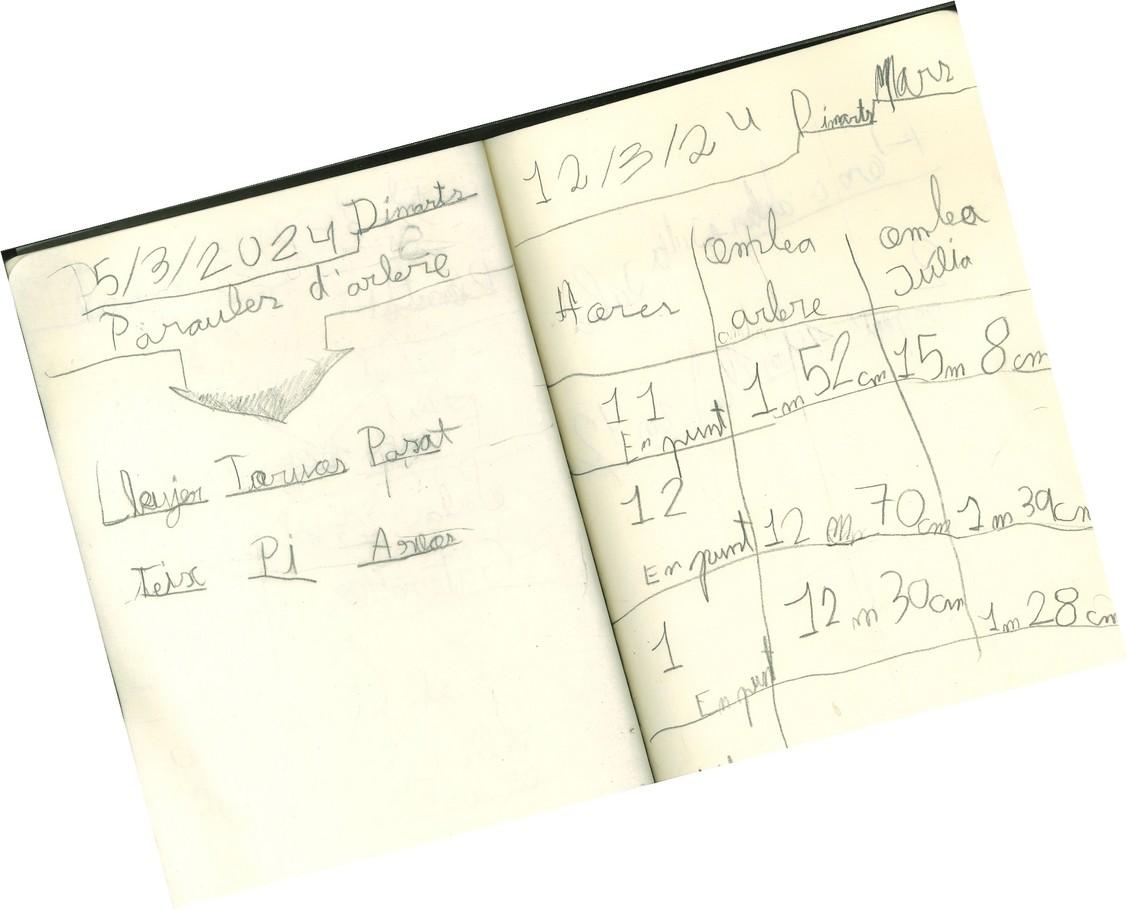 5/3/2024 Dimarts
Paraules d'arbre
Pasat
teix Pi
12/3/24 Dimarts Mars
Hores ombra arbre ombra Júlia
11 En punt 1m 52cm 15m 8cm
12 En punt 12 m 70cm 1m 39cm
1 En punt 12 m 30cm 1m 28cm